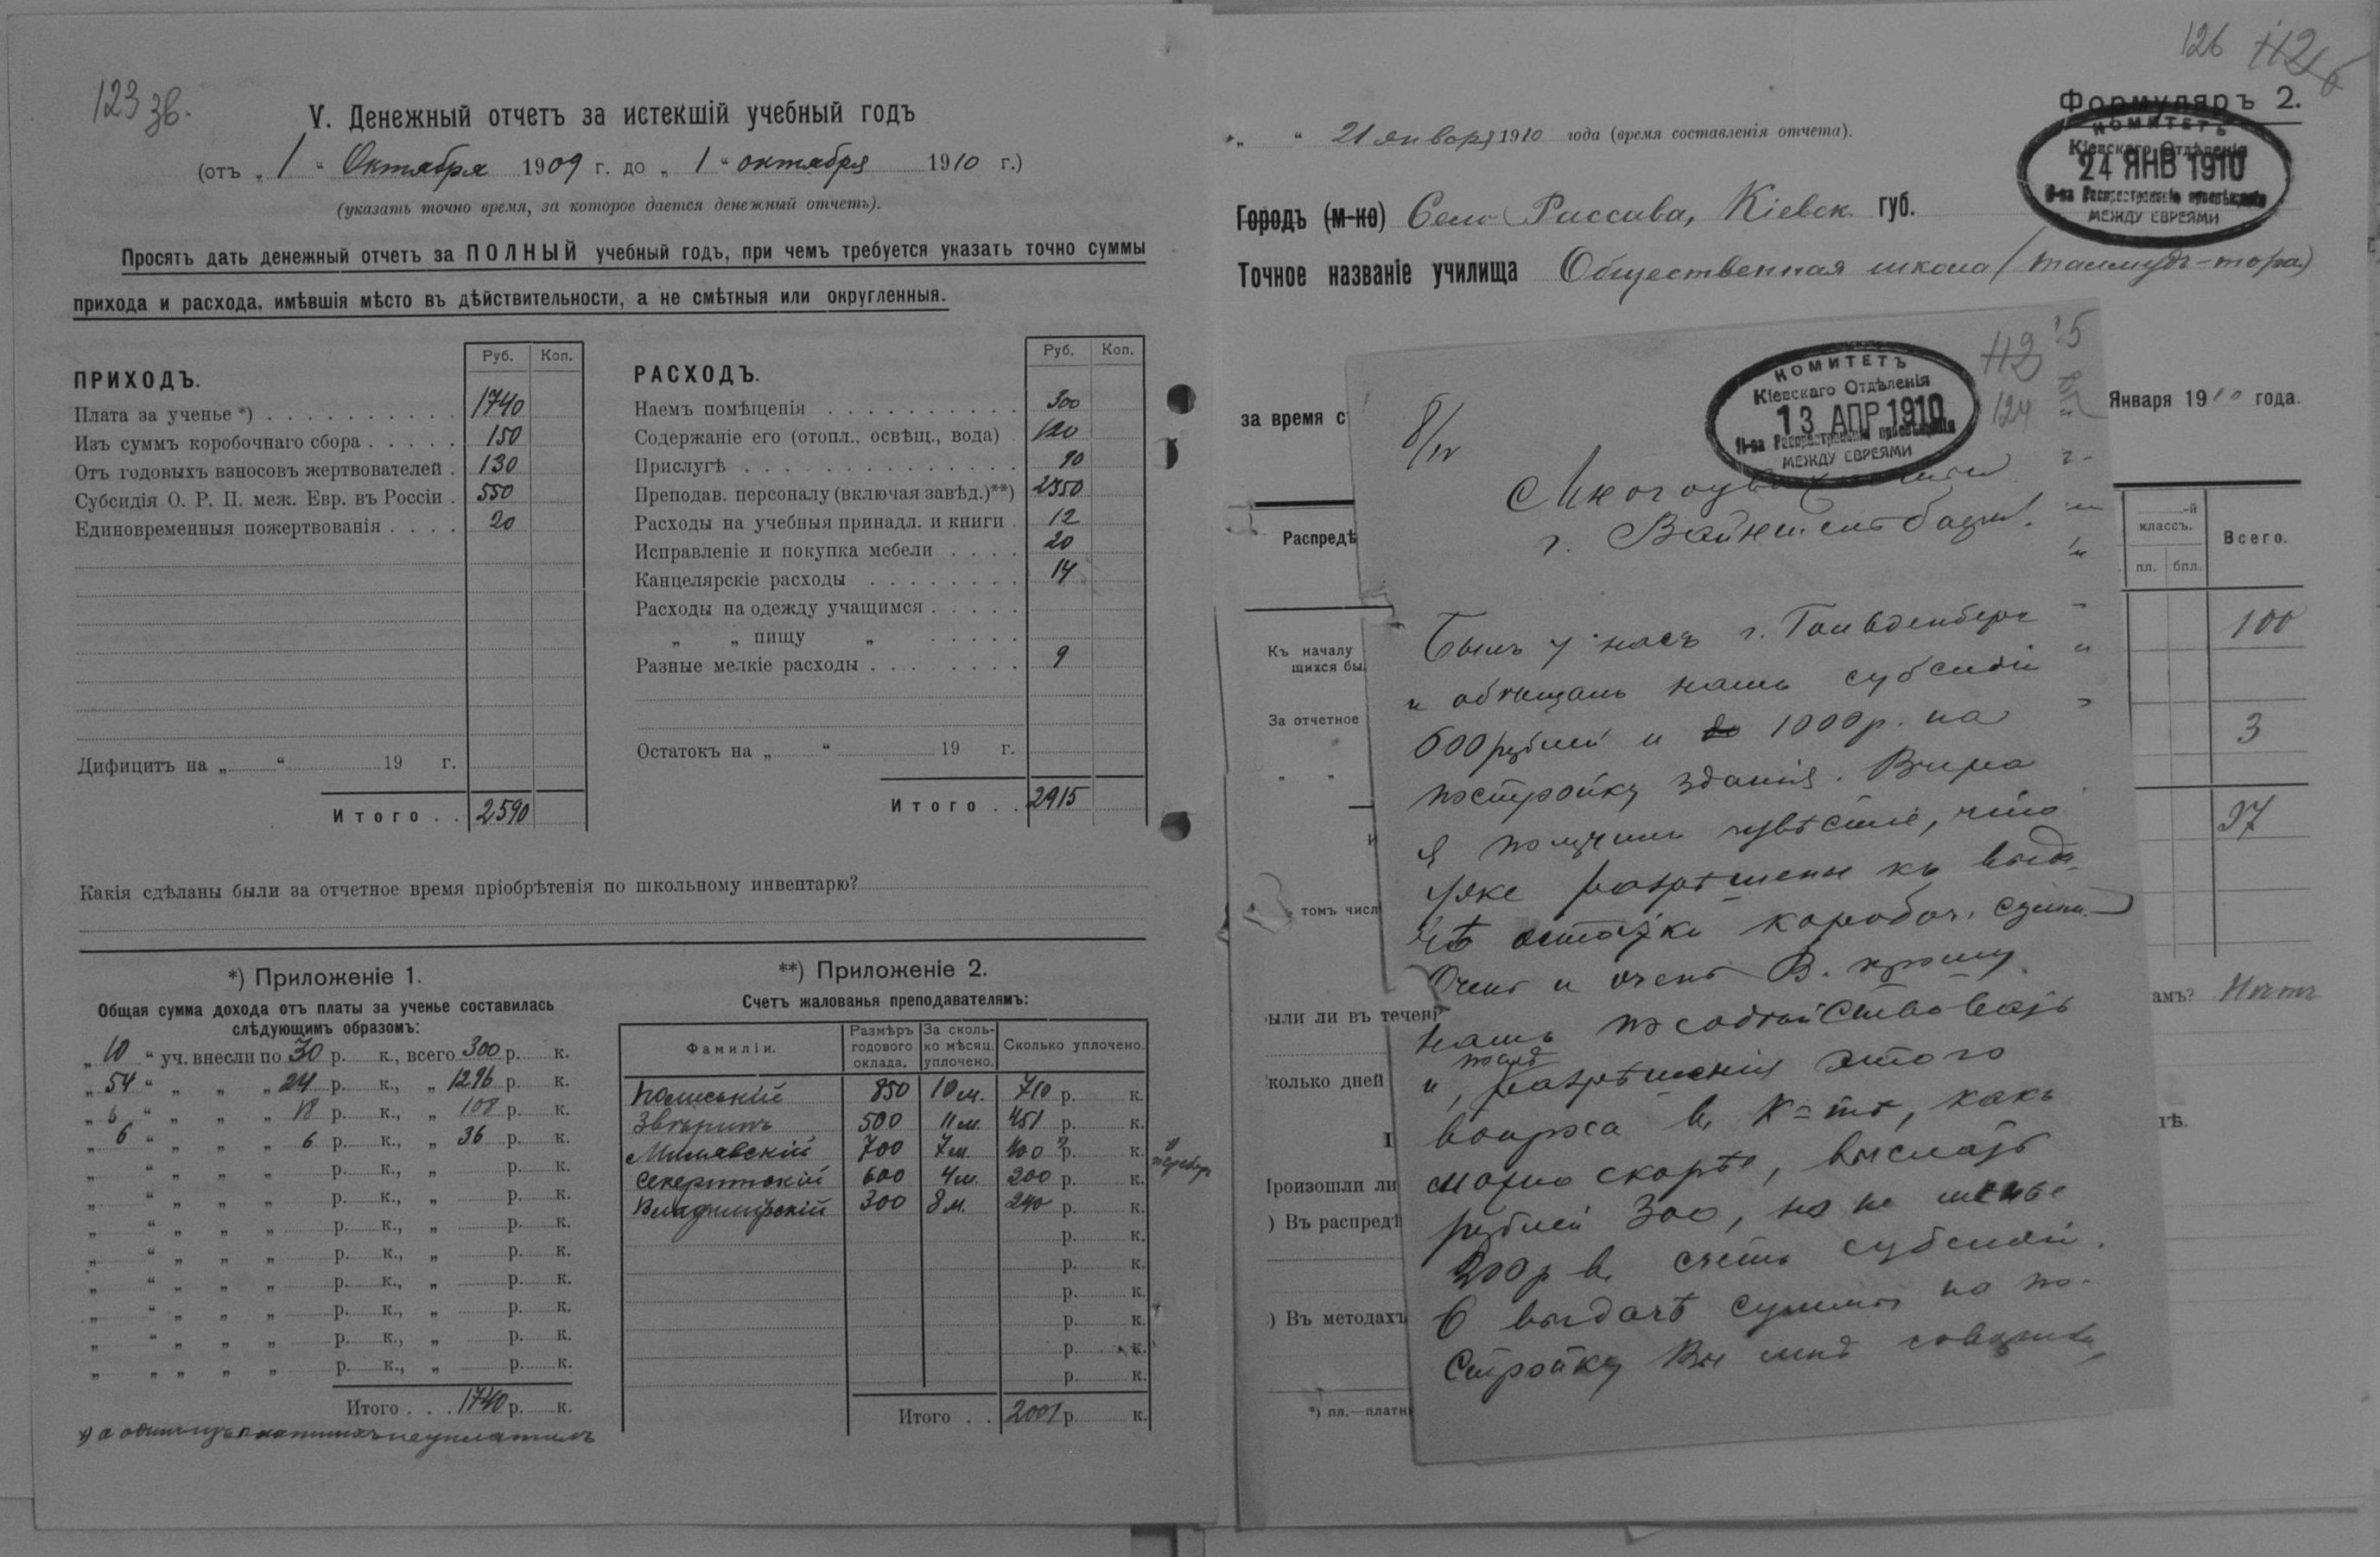 123 зв.
V. Денежный отчетъ за истекшій учебный годъ
(отъ „ 1 “ Октября 1909 г. до „ 1 “ октября 1910 г.)
(указать точно время, за которое дается денежный отчетъ).
Просятъ дать денежный отчетъ за ПОЛНЫЙ учебный годъ, при чемъ требуется указать точно суммы
прихода и расхода, имѣвшія мѣсто въ дѣйствительности, а не смѣтныя или округленныя.
ПРИХОДЪ. Руб. Коп.
Плата за ученье *) . . . 1740
Изъ суммъ коробочнаго сбора . . . 150
Отъ годовыхъ взносовъ жертвователей . 130
Субсидія О. Р. П. меж. Евр. въ Россіи . 550
Единовременныя пожертвованія . . . 20
Дифицитъ на „ “ 19 г.
Итого . . 2590
РАСХОДЪ. Руб. Коп.
Наемъ помѣщенія . . . 300
Содержаніе его (отопл., освѣщ., вода) . 120
Прислугѣ . . . 90
Преподав. персоналу (включая завѣд.)**) 2350
Расходы на учебныя принадл. и книги . 12
Исправленіе и покупка мебели . . . 20
Канцелярскіе расходы . . . 14
Расходы на одежду учащимся . . .
„ „ пищу „ . . .
Разные мелкіе расходы . . . 9
Остатокъ на „ “ 19 г.
Итого . . 2915
Какія сдѣланы были за отчетное время пріобрѣтенія по школьному инвентарю?
*) Приложеніе 1.
Общая сумма дохода отъ платы за ученье составилась
слѣдующимъ образомъ:
„ 10 “ уч. внесли по 30 р. к., всего 300 р. к.
„ 54 “ „ „ „ 24 р. к., „ 1296 р. к.
„ 6 “ „ „ „ 18 р. к., „ 108 р. к.
„ 6 “ „ „ „ 6 р. к., „ 36 р. к.
„ “ „ „ „ р. к., „ р. к.
„ “ „ „ „ р. к., „ р. к.
„ “ „ „ „ р. к., „ р. к.
„ “ „ „ „ р. к., „ р. к.
„ “ „ „ „ р. к., „ р. к.
„ “ „ „ „ р. к., „ р. к.
„ “ „ „ „ р. к., „ р. к.
„ „ „ „ „ р. к., „ р. к.
Итого . . . 1740 р. к.
**) Приложеніе 2.
Счетъ жалованья преподавателямъ:
Фамиліи. Размѣръ годового оклада. За сколько мѣсяц. уплочено. Сколько уплочено.
850 10 м. 710 р. к.
Звѣринъ 500 11 м. 451 р. к.
700 7 м. 400 р. к.
600 4 м. 200 р. к.
Владимірскій 300 8 м. 240 р. к.
р. к.
р. к.
р. к.
р. к.
р. к.
р. к.
Итого . . 2001 р. к.
126 112
Формуляръ 2.
КОМИТЕТЪ
Кіевскаго Отдѣленія
24 ЯНВ 1910
О-ва Распространенія просвѣщенія
МЕЖДУ ЕВРЕЯМИ
„ “ 21 января 1910 года (время составленія отчета).
Городъ (м-ко) Село Россава, Кіевск. губ.
Точное названіе училища Общественная школа (талмудъ-тора)
за время с
Января 1910 года.
Распредѣ
-й
классъ.
Всего.
пл. бпл.
Къ началу
щихся бы
100
За отчетное
„ „
3
97
томъ числ
ыли ли въ течені
амъ? Нѣтъ
колько дней
гѣ.
Произошли ли
) Въ распредѣ
) Въ методахъ
*) пл.—платн
КОМИТЕТЪ
Кіевскаго Отдѣленія
13 АПР 1910
О-ва Распространенія просвѣщенія
МЕЖДУ ЕВРЕЯМИ
112
124
8/IV
Многоуважаемый
г. Вайнштейнбаумъ!
Былъ у насъ г. Гольденбергъ
и обѣщалъ намъ субсидіи
600 рублей и до 1000 р. на
постройку зданія. Вчера
я получилъ извѣстіе, что
уже разрѣшены къ выда-
чѣ остатки коробоч. суммъ.
Очень и очень В. прошу
намъ посодѣйствовать
и, послѣ разрѣшенія этого
вопроса въ К-тѣ, какъ
можно скорѣе, выслать
рублей 300, но не менѣе
200 р въ счетъ субсидіи.
О выдачѣ суммы на по-
стройку Вы мнѣ